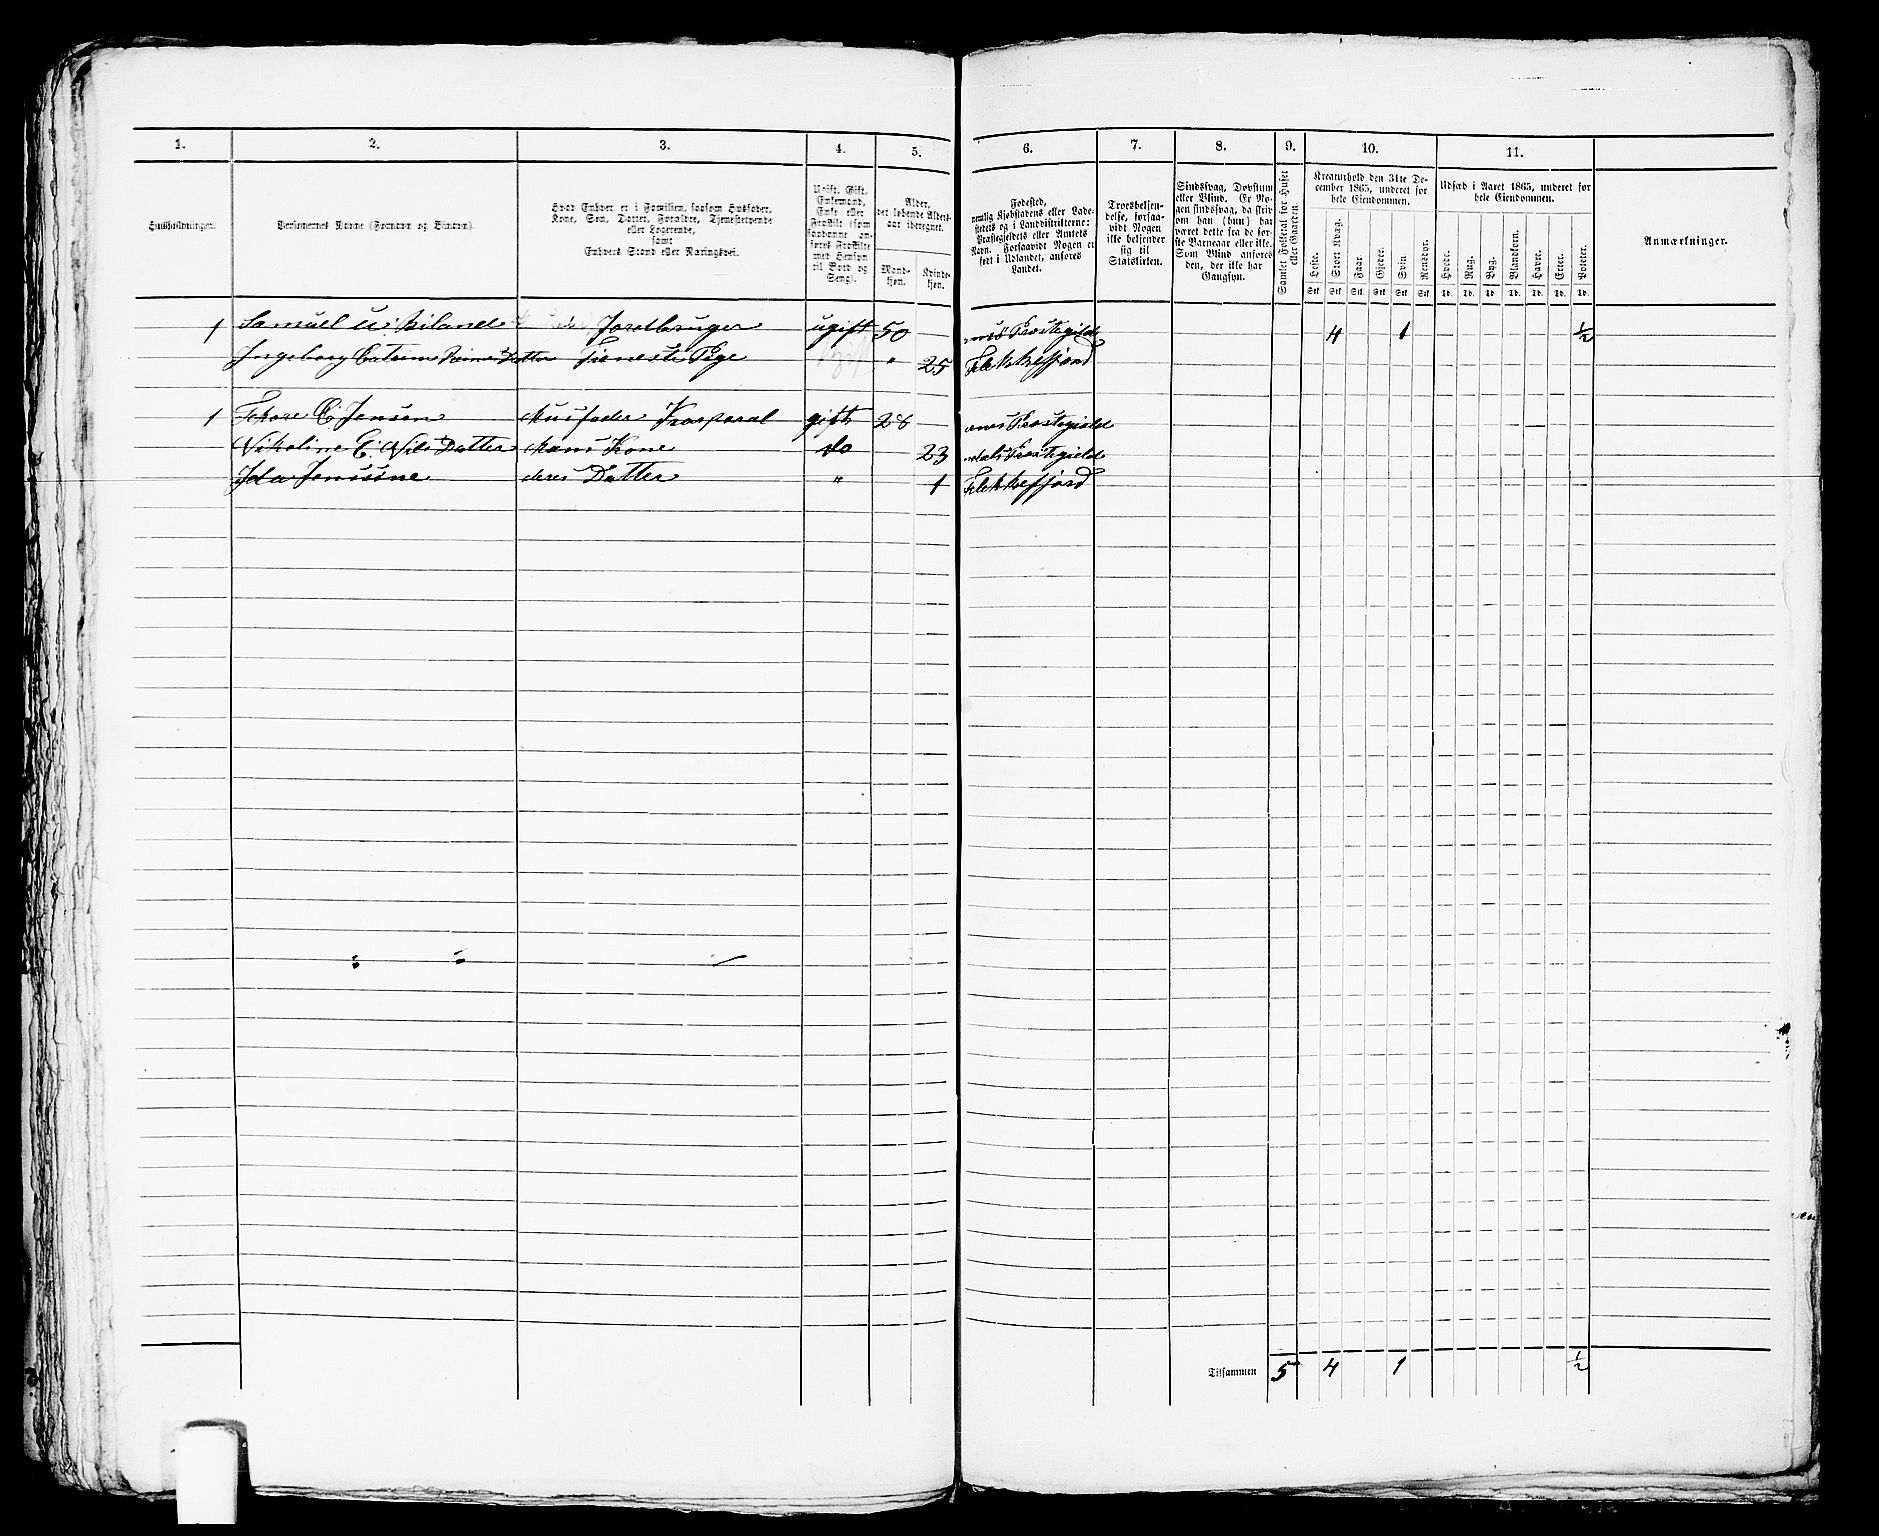 1. 2. 3. 4. 5. 6. 7. 8. 9. 10. 11.
Husholdninger.
Personernes Navne (Fornavn og Tilnavn).
Hvad Enhver er i Familien, saasom Husfader,
Kone, Søn, Datter, Forældre, Tjenestetyende
eller Logerende,
samt
Enhvers Stand eller Næringsvei.
Ugift, Gift,
Enkemand,
Enke eller
Fraskilt (som
saadanne an-
føres Fraskilte
med Hensyn
til Bord og
Seng).
Alder,
det løbende Alders-
aar iberegnet.
Mand-
kjøn.
Kvinde-
kjøn.
Fødested,
nemlig Kjøbstadens eller Lade-
stedets og i Landdistrikterne:
Præstegjeldets eller Amtets
Navn. Forsaavidt Nogen er
født i Udlandet, anføres
Landet.
Troesbekjen-
delse, forsaa-
vidt Nogen
ikke bekjender
sig til
Statskirken.
Sindssvag, Døvstum
eller Blind. Er No-
gen sindssvag, da skriv
om han (hun) har
været dette fra de før-
ste Barneaar eller ikke.
Som Blind anføres
den, der ikke har
Gangsyn.
Samlet Folketal for Huset
eller Gaarden.
Kreaturhold den 31te De-
cember 1865, underet for
hele Eiendommen.
Heste. Stort Kvæg. Faar. Gjeder. Svin. Rensdyr.
Stk. Stk. Stk. Stk. Stk. Stk.
Udsæd i Aaret 1865, underet for
hele Eiendommen.
Hvede. Rug. Byg. Blandkorn. Havre. Erter. Poteter.
Td. Td. Td. Td. Td. Td. Td.
Anmærkninger.
1 Samuel Jordbruger ugift 50 Præstegield 4 1 ½
Ingeborg Catrine Datter Tieneste Pige " 25 Flekkefjord
1 Tobias C Jensen Husfader Korporal gift 28 Præstegield
Nikoline C. Nils Datter Hans Kone do 23 Præstegield
Ida deres Datter " 1 Flekkefjord
Tilsammen 5 4 1 ½